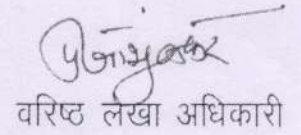 वरिष्ठ लेखा अधिकारी